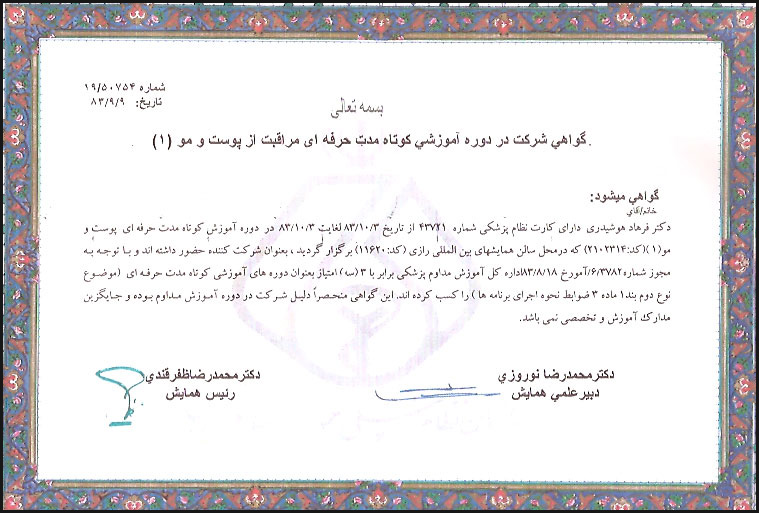 شماره ۱۹/۵۰۷۵۴
تاریخ: ۸۳/۹/۹
بسمه تعالی
گواهي شرکت در دوره آموزشي کوتاه مدت حرفه ای مراقبت از پوست و مو (۱)
گواهي میشود:
خانم/آقاي
دکتر فرهاد هوشیدری دارای کارت نظام پزشکی شماره ۴۳۷۲۱ از تاریخ ۸۳/۱۰/۳ لغایت ۸۳/۱۰/۳ در دوره آموزش کوتاه مدت حرفه ای پوست و
مو(۱)(کد:۲۱۰۲۳۱۴) که درمحل سالن همایشهای بین المللی رازی (کد:۱۱۶۲۰) برگزار گردید ، بعنوان شرکت کننده حضور داشته اند و با توجه به
مجوز شماره ۶/۳۷۸۲/آمورخ ۸۳/۸/۱۸اداره کل آموزش مداوم پزشکی برابر با ۳ (سه) امتیاز بعنوان دوره های آموزشی کوتاه مدت حرفه ای (موضوع
نوع دوم بند۱ ماده ۳ ضوابط نحوه اجرای برنامه ها ) را کسب کرده اند. این گواهی منحصراً دلیل شرکت در دوره آموزش مداوم بوده و جایگزین
مدارك آموزش و تخصصی نمی باشد.
دکترمحمدرضا نوروزي
دبیرعلمي همایش
دکترمحمدرضاظفرقندي
رئیس همایش